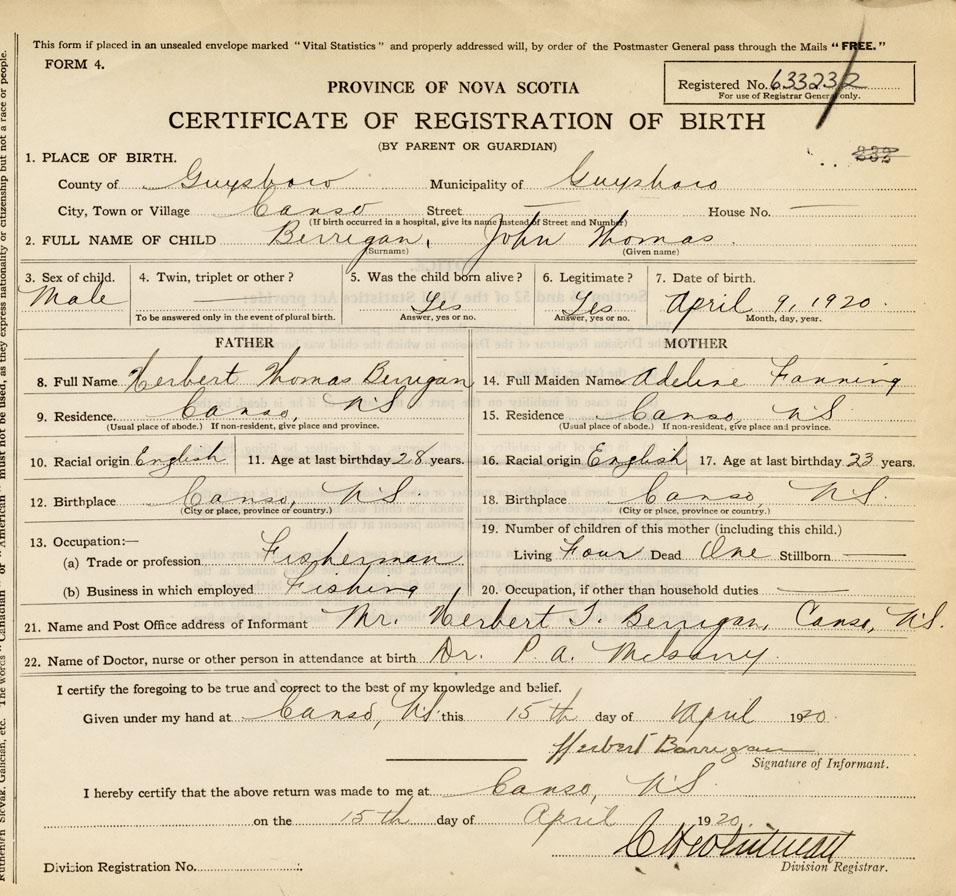 This form if placed in an unsealed envelope marked "Vital Statistics" and properly addressed will, by order of the Postmaster General pass through the Mails "FREE."
FORM 4.
Registered No. 633232
For use of Registrar General only.
PROVINCE OF NOVA SCOTIA
CERTIFICATE OF REGISTRATION OF BIRTH
(BY PARENT OR GUARDIAN)
232
1. PLACE OF BIRTH.
County of Guysboro Municipality of Guysboro
City, Town or Village Canso Street — House No. —
(If birth occurred in a hospital, give its name instead of Street and Number)
2. FULL NAME OF CHILD Berrigan, John Thomas.
(Surname) (Given name)
3. Sex of child. 4. Twin, triplet or other? 5. Was the child born alive? 6. Legitimate? 7. Date of birth.
Male — Yes Yes April 9, 1920.
To be answered only in the event of plural birth. Answer, yes or no. Answer, yes or no. Month, day, year.
FATHER MOTHER
8. Full Name Herbert Thomas Berrigan 14. Full Maiden Name Adeline Fanning
9. Residence. Canso, NS 15. Residence Canso, NS
(Usual place of abode.) If non-resident, give place and province. (Usual place of abode.) If non-resident, give place and province.
10. Racial origin English 11. Age at last birthday 28 years. 16. Racial origin English 17. Age at last birthday 23 years.
12. Birthplace Canso, NS. 18. Birthplace Canso, NS.
(City or place, province or country.) (City or place, province or country.)
13. Occupation:— 19. Number of children of this mother (including this child.)
(a) Trade or profession Fisherman Living Four Dead One Stillborn —
(b) Business in which employed Fishing 20. Occupation, if other than household duties —
21. Name and Post Office address of Informant Mr. Herbert T. Berrigan, Canso, NS.
22. Name of Doctor, nurse or other person in attendance at birth Dr. P. A.
I certify the foregoing to be true and correct to the best of my knowledge and belief.
Given under my hand at Canso, NS. this 15th day of April 1920.
Herbert Berrigan
Signature of Informant.
I hereby certify that the above return was made to me at Canso, NS
on the 15th day of April 1920.
Division Registration No. Division Registrar.
Ruthenian Slovak, Galician, etc. The words "Canadian" or "American" must not be used, as they express nationality or citizenship but not a race or people.